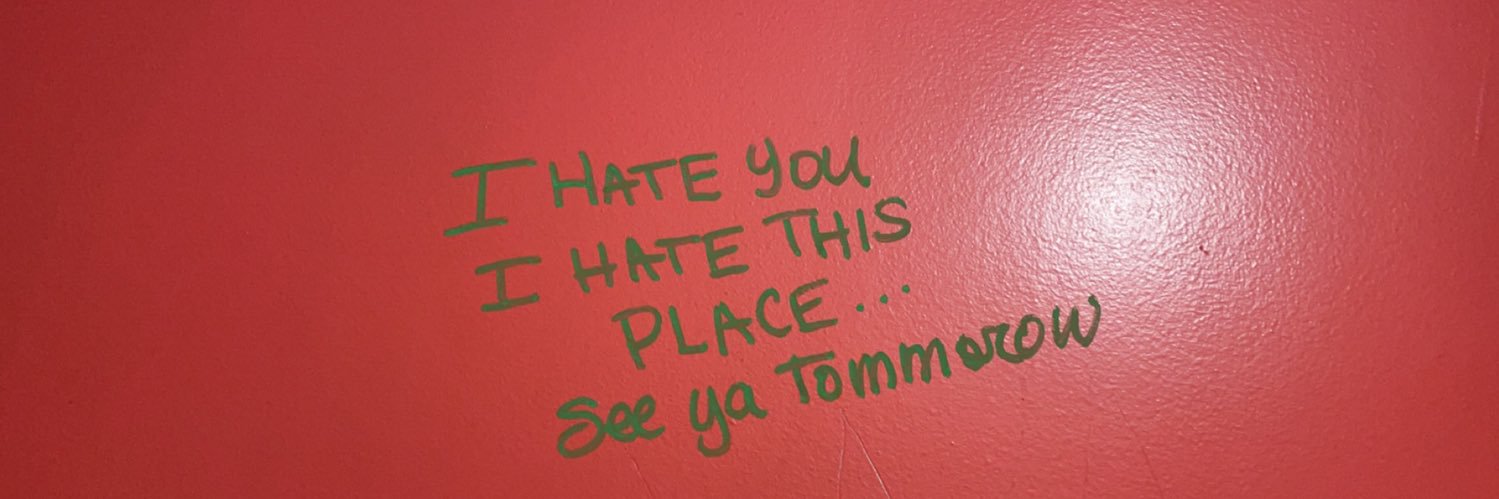 I HATE you
I HATE THIS
PLACE...
See ya Tommorow